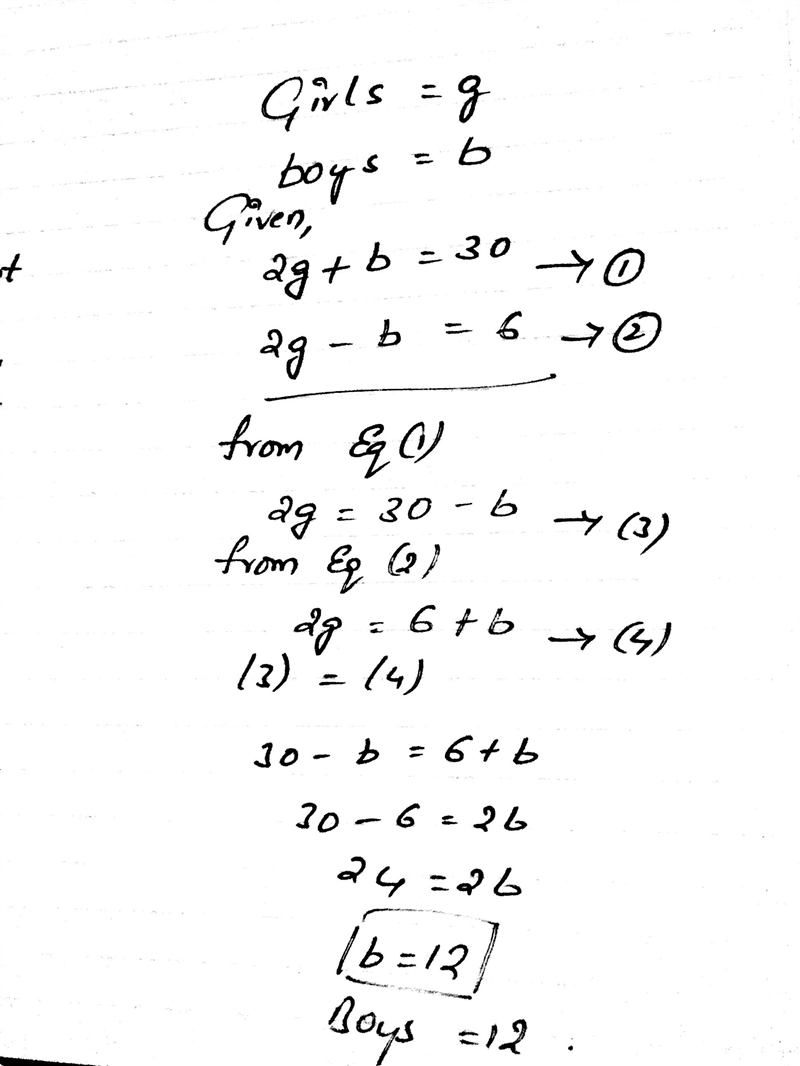 Girls = g
boys = b
Given,
2g + b = 30 → ①
2g - b = 6 → ②
from Eq (1)
2g = 30 - b → (3)
from Eq (2)
2g = 6 + b → (4)
(3) = (4)
30 - b = 6 + b
30 - 6 = 2b
24 = 2b
b = 12
Boys = 12 .